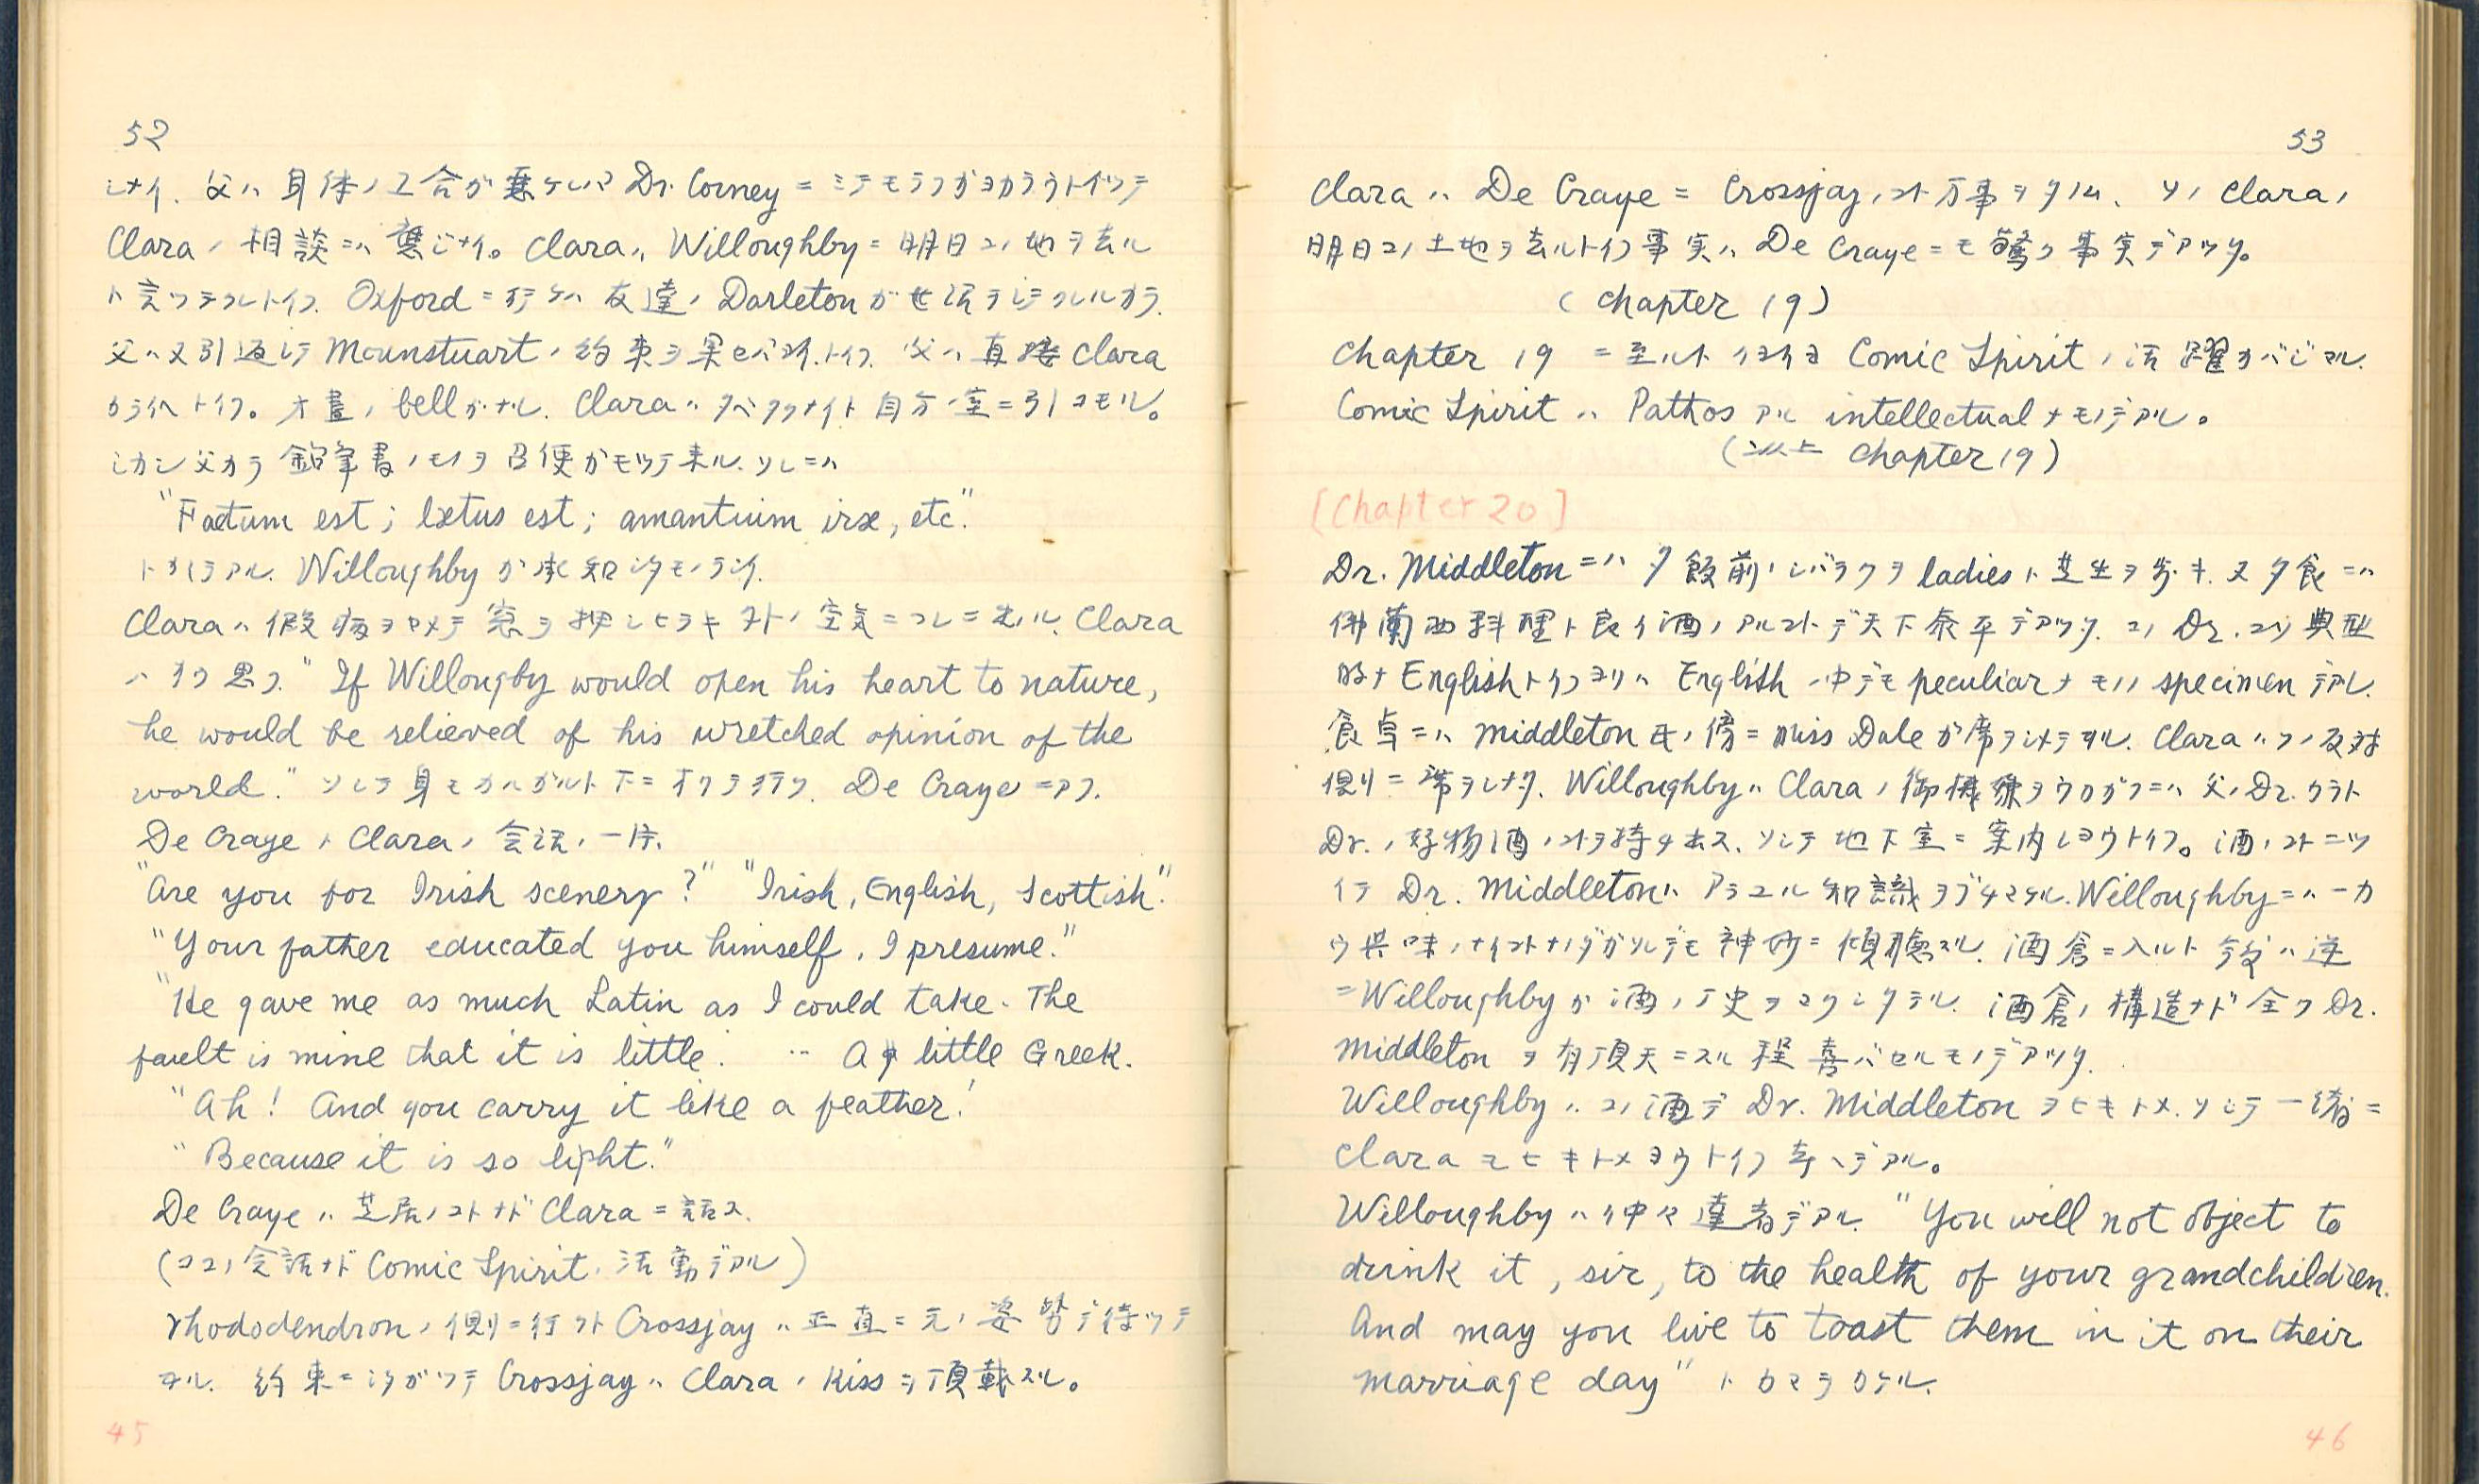 52
シナイ. 父ハ身体ノ工合が悪ケレバ Dr. Corney ニミテモラフガヨカラウトイツテ
Clara ノ相談ニハ應ジナイ。Clara ハ Willoughby ニ明日コノ地ヲ去ル
ト言ツテクレトイフ. Oxford ニ行ケバ友達ノ Darleton ガ世話ヲシテクレルカラ.
父ハ又引返シテ Mounstuart ノ約束ヲ果セバヨイ.トイフ. 父ハ直接 Clara
カライヘトイフ。オ晝ノ bell ガナル. Clara ハタベタクナイト自分ノ室ニ引コモル。
シカシ父カラ鉛筆書ノモノヲ召使ガモツテ来ル. ソレニハ
"Factum est; lætus est; amantium iræ, etc."
トカイテアル. Willoughby ガ承知シタモノラシイ.
Clara ハ假病ヲヤメテ窓ヲ押シヒラキ外ノ空気ニフレニ出ル. Clara
ハカク思フ. "If Willougby would open his heart to nature,
he would be relieved of his wretched opinion of the
world." ソシテ身モカルガルト下ニオリテ行ク. De Craye ニアフ.
De Craye ト Clara ノ会話ノ一片.
"Are you for Irish scenery?" "Irish, English, Scottish."
"Your father educated you himself, I presume."
"He gave me as much Latin as I could take. The
fault is mine that it is little. .. A little Greek.
"Ah! And you carry it like a feather!
"Because it is so light."
De Craye ハ芝居ノコトナド Clara ニ話ス.
(ココノ会話ナド Comic Spirit ノ活動デアル)
rhododendron ノ側ニ行クト Crossjay ハ正直ニ元ノ姿勢デ待ツテ
ヰル. 約束ニシタガツテ Crossjay ハ Clara ノ kiss ヲ頂戴スル。
45
53
Clara ハ De Craye ニ Crossjay ノコト万事ヲタノム. ソノ Clara ノ
明日コノ土地ヲ去ルトイフ事実ハ De Craye ニモ驚ク事実デアツタ。
(Chapter 19)
Chapter 19 ニ至ルトイヨイヨ Comic Spirit ノ活躍ガハジマル.
Comic Spirit ハ Pathos アル intellectual ナモノデアル。
(以上 Chapter 19)
[Chapter 20]
Dr. Middleton ニハ夕飯前ノシバラクヲ ladies ト芝生ヲ歩キ. 又夕食ニハ
佛蘭西料理ト良イ酒ノアルコトデ天下泰平デアツタ. コノ Dr. コソ典型
的ナ English トイフヨリハ English ノ中デモ peculiar ナモノノ specimen デアル.
食卓ニハ Middleton 氏ノ傍ニ Miss Dale ガ席ヲシメテヰル. Clara ハソノ反対
側ニ席ヲシメタ. Willoughby ハ Clara ノ御機嫌ヲウカガフニハ父ノ Dr. カラト
Dr. ノ好物酒ノコトヲ持チ出ス. ソシテ地下室ニ案内シヨウトイフ。酒ノコトニツ
イテ Dr. Middleton ハアラユル知識ヲブチマケル. Willoughby ニハ一カ
ウ興味ノナイコトナノダガソレデモ神妙ニ傾聴スル. 酒倉ニ入ルト今度ハ逆
ニ Willoughby ガ酒ノ歴史ヲ. 酒倉ノ構造ナド全ク Dr.
Middleton ヲ有頂天ニスル程喜バセルモノデアツタ.
Willoughby ハコノ酒デ Dr. Middleton ヲヒキトメ. ソシテ一緒ニ
Clara モヒキトメヨウトイフ考ヘデアル。
Willoughby ハ仲々達者デアル. "You will not object to
drink it, sir, to the health of your grandchildren.
And may you live to toast them in it on their
marriage day" トカマヲカケル.
46